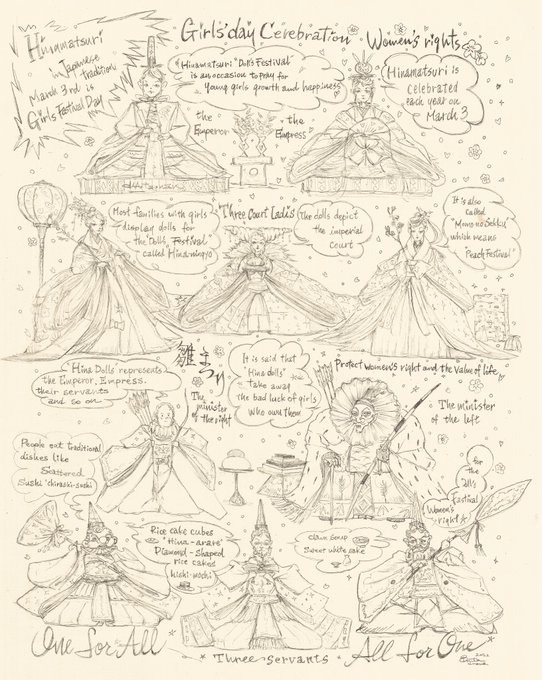 Hinamatsuri
in Japanese
tradition
March 3rd is
Girls Festival Day
Girls'day Cerebration
Women's rights
Hinamatsuri "Doll's Festival"
is an occasion to pray for
young girls growth and happiness
Hinamatsuri is
celebrated
each year on
March 3
the
Emperor
the
Empress
Most families with girls
display dolls for
the "Doll's Festival"
called Hinaningyo
Three Court Ladi's
The dolls depict
the imperial
court
It is also
called
"Momo no Sekku"
which means
Peach Festival"
Hina Dolls represents
the Emperor, Empress.
their servants
and so on
雛まつり
The
minister
of the right
It is said that
"Hina dolls"
take away
the bad luck of girls
who own them
Protect women's right and the value of life
The minister
of the left
People eat traditional
dishes like
Scattered
Sushi "chirashi-sushi
for
the
Doll's
Festival
Women's
right
Rice cake cubes
"Hina-arare"
Diamond-shaped
rice cakes
hishi-mochi
Clam soup
Sweet white sake
One for All
Three servants
All for One
2022